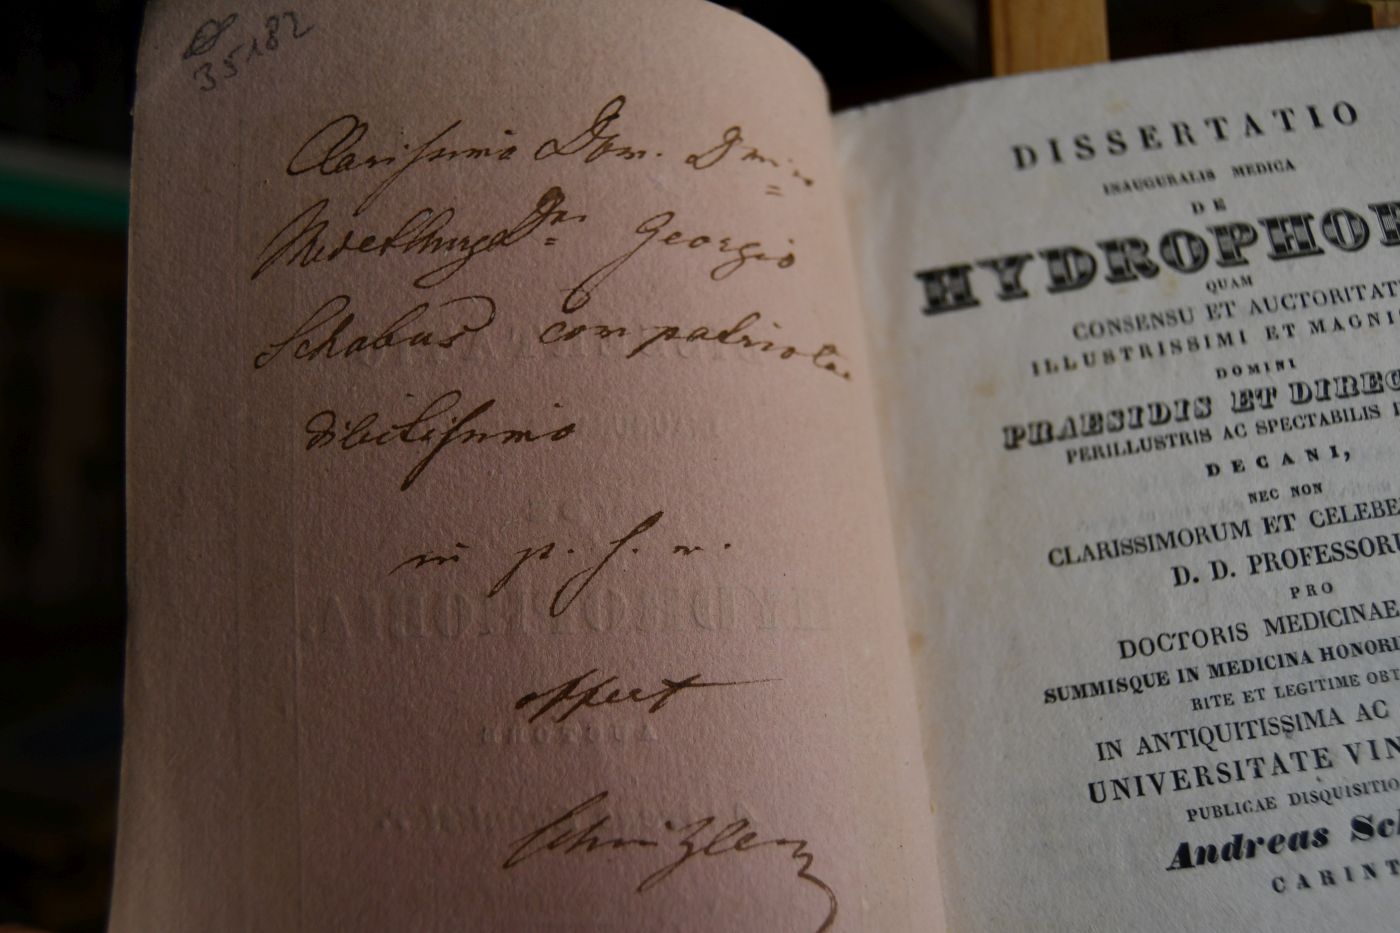 35182
Clarissimo Dom. Dm:
Georgio
Schabus compatriotae
dilectissimo
in p. f. m.
offert
DISSERTATIO
INAUGURALIS MEDICA
DE
HYDROPHOB
QUAM
CONSENSU ET AUCTORITAT
ILLUSTRISSIMI ET MAGNI
DOMINI
PRAESIDIS ET DIREC
PERILLUSTRIS AC SPECTABILIS
DECANI,
NEC NON
CLARISSIMORUM ET CELEBE
D. D. PROFESSORU
PRO
DOCTORIS MEDICINAE
SUMMISQUE IN MEDICINA HONORI
RITE ET LEGITIME OBT
IN ANTIQUITISSIMA AC
UNIVERSITATE VIN
PUBLICAE DISQUISITIO
Andreas Sch
CARINT